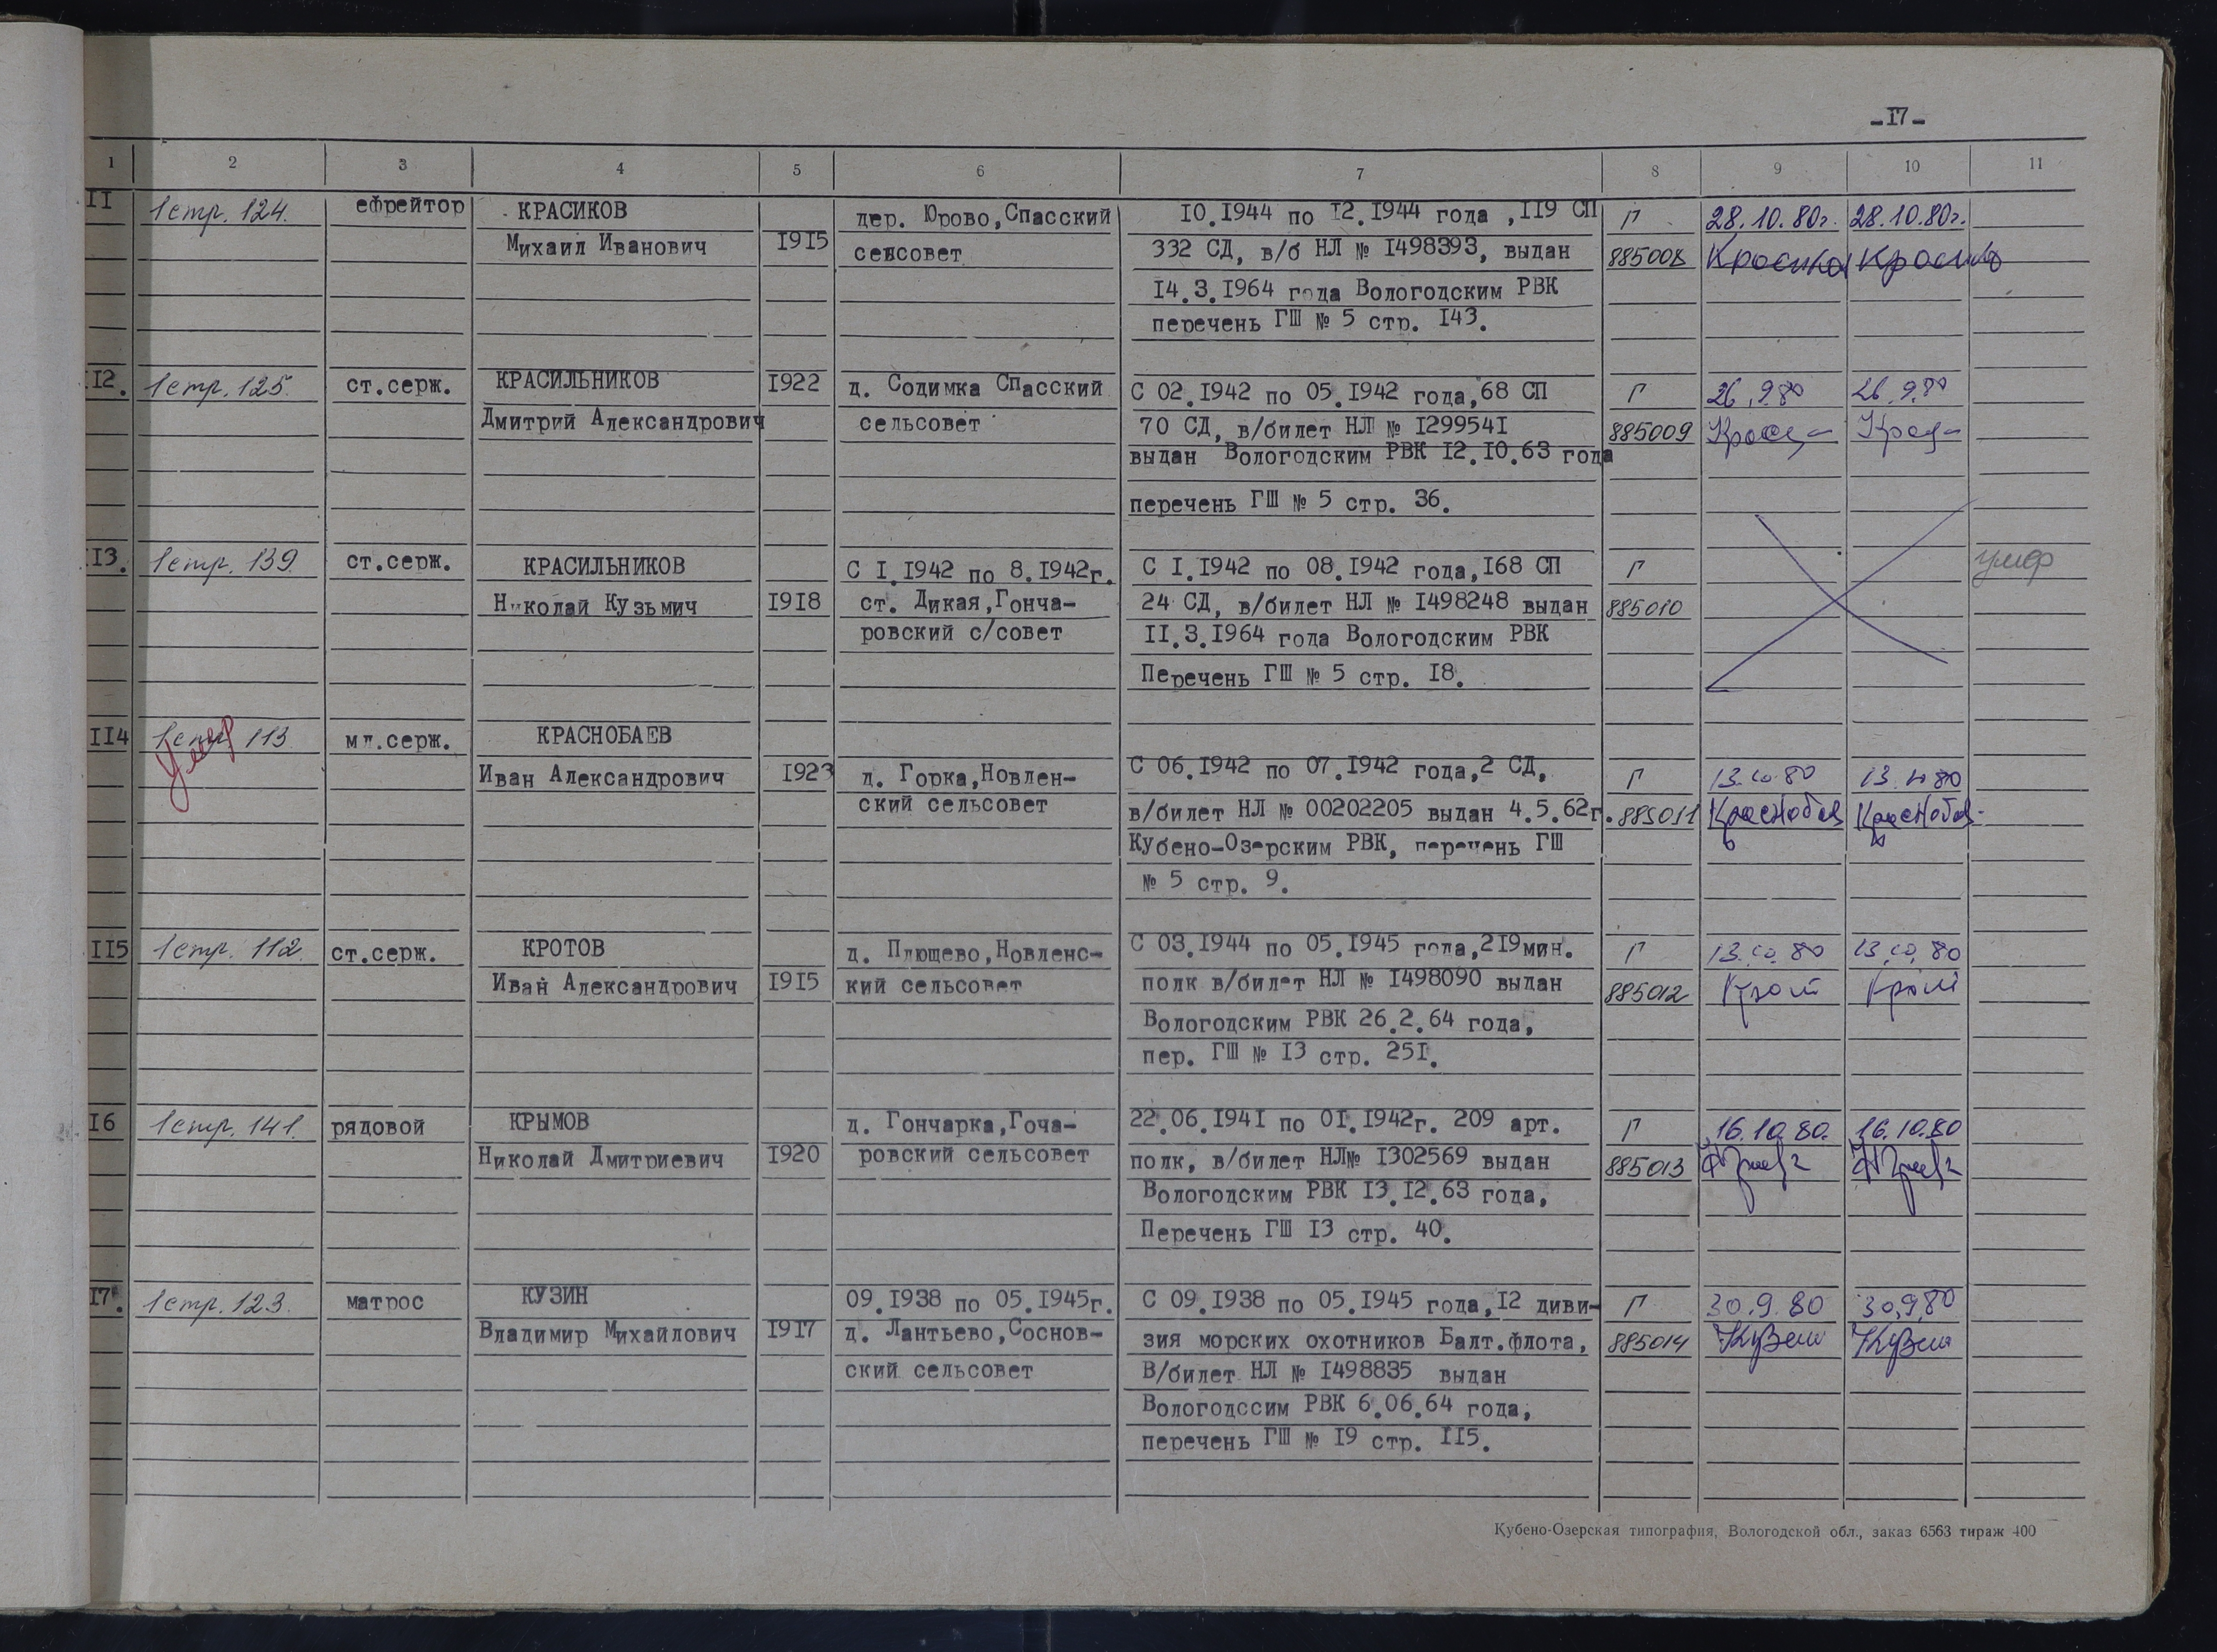 -I7-
1 2 3 4 5 6 7 8 9 10 11
II 1стр. 124. ефрейтор КРАСИКОВ дер. Юрово,Спасский I0.I944 по I2.I944 года ,II9 СП Г 28.10.80г. 28.10.80г.
Михаил Иванович I9I5 сеvсовет 332 СД, в/б НЛ № I498393, выдан 885008 Красиков Красиков
I4.3.I964 года Вологодским РВК
перечень ГШ № 5 стр. I43.
I2. 1стр. 125. ст.серж. КРАСИЛЬНИКОВ I922 д. Содимка Спасский С 02.I942 по 05.I942 года,68 СП Г 26.9.80 26.9.80
Дмитрий Александрович сельсовет 70 СД, в/билет НЛ № I29954I 885009
выдан Вологодским РВК I2.I0.63 года
перечень ГШ № 5 стр. 36.
I3. 1стр. 139. ст.серж. КРАСИЛЬНИКОВ С I.I942 по 8.I942г. С I.I942 по 08.I942 года,I68 СП Г умер
Николай Кузьмич I9I8 ст. Дикая,Гонча- 24 СД, в/билет НЛ № I498248 выдан 885010
ровский с/совет II.3.I964 года Вологодским РВК
Перечень ГШ № 5 стр. I8.
II4 1стр. 113 Умер мл.серж. КРАСНОБАЕВ
Иван Александрович I923 д. Горка,Новлен- С 06.I942 по 07.I942 года,2 СД, Г 13.10.80 13.10.80
ский сельсовет в/билет НЛ № 00202205 выдан 4.5.62г. 885011 Краснобаев Краснобаев
Кубено-Озерским РВК, перечень ГШ
№ 5 стр. 9.
II5 1стр. 112. ст.серж. КРОТОВ д. Плющево,Новленс- С 03.I944 по 05.I945 года,2I9мин. Г 13.10.80 13.10.80
Иван Александрович I9I5 кий сельсовет полк в/билет НЛ № I498090 выдан 885012 Крот Крот
Вологодским РВК 26.2.64 года,
пер. ГШ № I3 стр. 25I.
I6 1стр. 141. рядовой КРЫМОВ д. Гончарка,Гоча- 22.06.I94I по 0I.I942г. 209 арт. Г 16.10.80. 16.10.80
Николай Дмитриевич I920 ровский сельсовет полк, в/билет НЛ№ I302569 выдан 885013
Вологодским РВК I3.I2.63 года,
Перечень ГШ I3 стр. 40.
I7. 1стр. 123. матрос КУЗИН 09.I938 по 05.I945г. С 09.I938 по 05.I945 года,I2 диви- Г 30.9.80 30.9.80
Владимир Михайлович I9I7 д. Лантьево,Соснов- зия морских охотников Балт.флота, 885014 Кузин Кузин
ский сельсовет В/билет НЛ № I498835 выдан
Вологодссим РВК 6.06.64 года,
перечень ГШ № I9 стр. II5.
Кубено-Озерская типография, Вологодской обл., заказ 6563 тираж 400